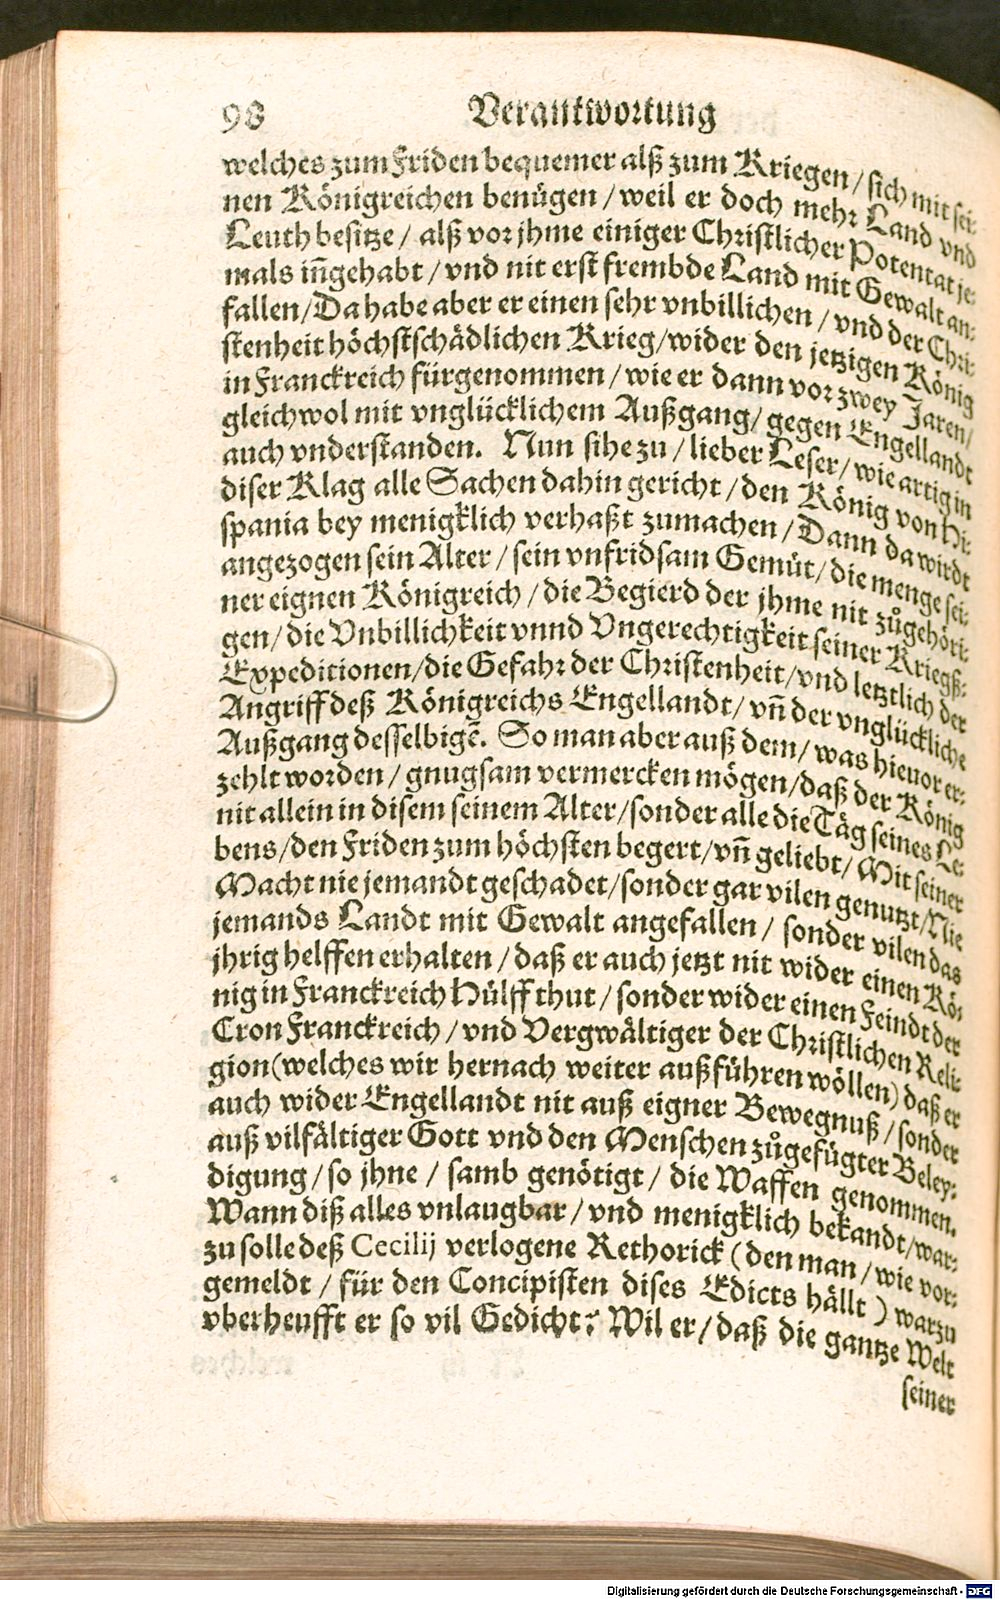 98 Verantwortung
welches zum Friden bequemer alß zum Kriegen / sich mit sei-
nen Königreichen benügen / weil er doch mehr Land vnd
Leuth besitze / alß vor jhme einiger Christlicher Potentat je-
mals iñgehabt / vnd nit erst frembde Land mit Gewalt an-
fallen / Da habe aber er einen sehr vnbillichen / vnd der Chri-
stenheit höchstschädlichen Krieg / wider den jetzigen König
in Franckreich fürgenommen / wie er dann vor zwey Jaren /
gleichwol mit vnglücklichem Außgang / gegen Engellandt
auch vnderstanden. Nun sihe zu / lieber Leser / wie artig in
diser Klag alle Sachen dahin gericht / den König von Hi-
spania bey menigklich verhaßt zumachen / Dann da wirdt
angezogen sein Alter / sein vnfridsam Gemüt / die menge sei-
ner eignen Königreich / die Begierd der jhme nit zůgehöri-
gen / die Vnbillichkeit vnnd Vngerechtigkeit seiner Kriegß-
Expeditionen / die Gefahr der Christenheit / vnd letztlich der
Angriff deß Königreichs Engellandt / vñ der vnglückliche
Außgang desselbigẽ. So man aber auß dem / was hieuor er-
zehlt worden / gnugsam vermercken mögen / daß der König
nit allein in disem seinem Alter / sonder alle die Täg seines Le-
bens / den Friden zum höchsten begert / vñ geliebt / Mit seiner
Macht nie jemandt geschadet / sonder gar vilen genutzt / Nie
jemands Landt mit Gewalt angefallen / sonder vilen das
jhrig helffen erhalten / daß er auch jetzt nit wider einen Kö-
nig in Franckreich Hülff thut / sonder wider einen Feindt der
Cron Franckreich / vnd Vergwältiger der Christlichen Reli-
gion (welches wir hernach weiter außführen wöllen) daß er
auch wider Engellandt nit auß eigner Bewegnuß / sonder
auß vilfältiger Gott vnd den Menschen zůgefügter Beley-
digung / so jhne / samb genötigt / die Waffen genommen.
Wann diß alles vnlaugbar / vnd menigklich bekandt / war-
zu solle deß Cecilij verlogene Rethorick (den man / wie vor-
gemeldt / für den Concipisten dises Edicts hällt) warzu
vberheufft er so vil Gedicht? Wil er / daß die gantze Welt
seiner
Digitalisierung gefördert durch die Deutsche Forschungsgemeinschaft - DFG